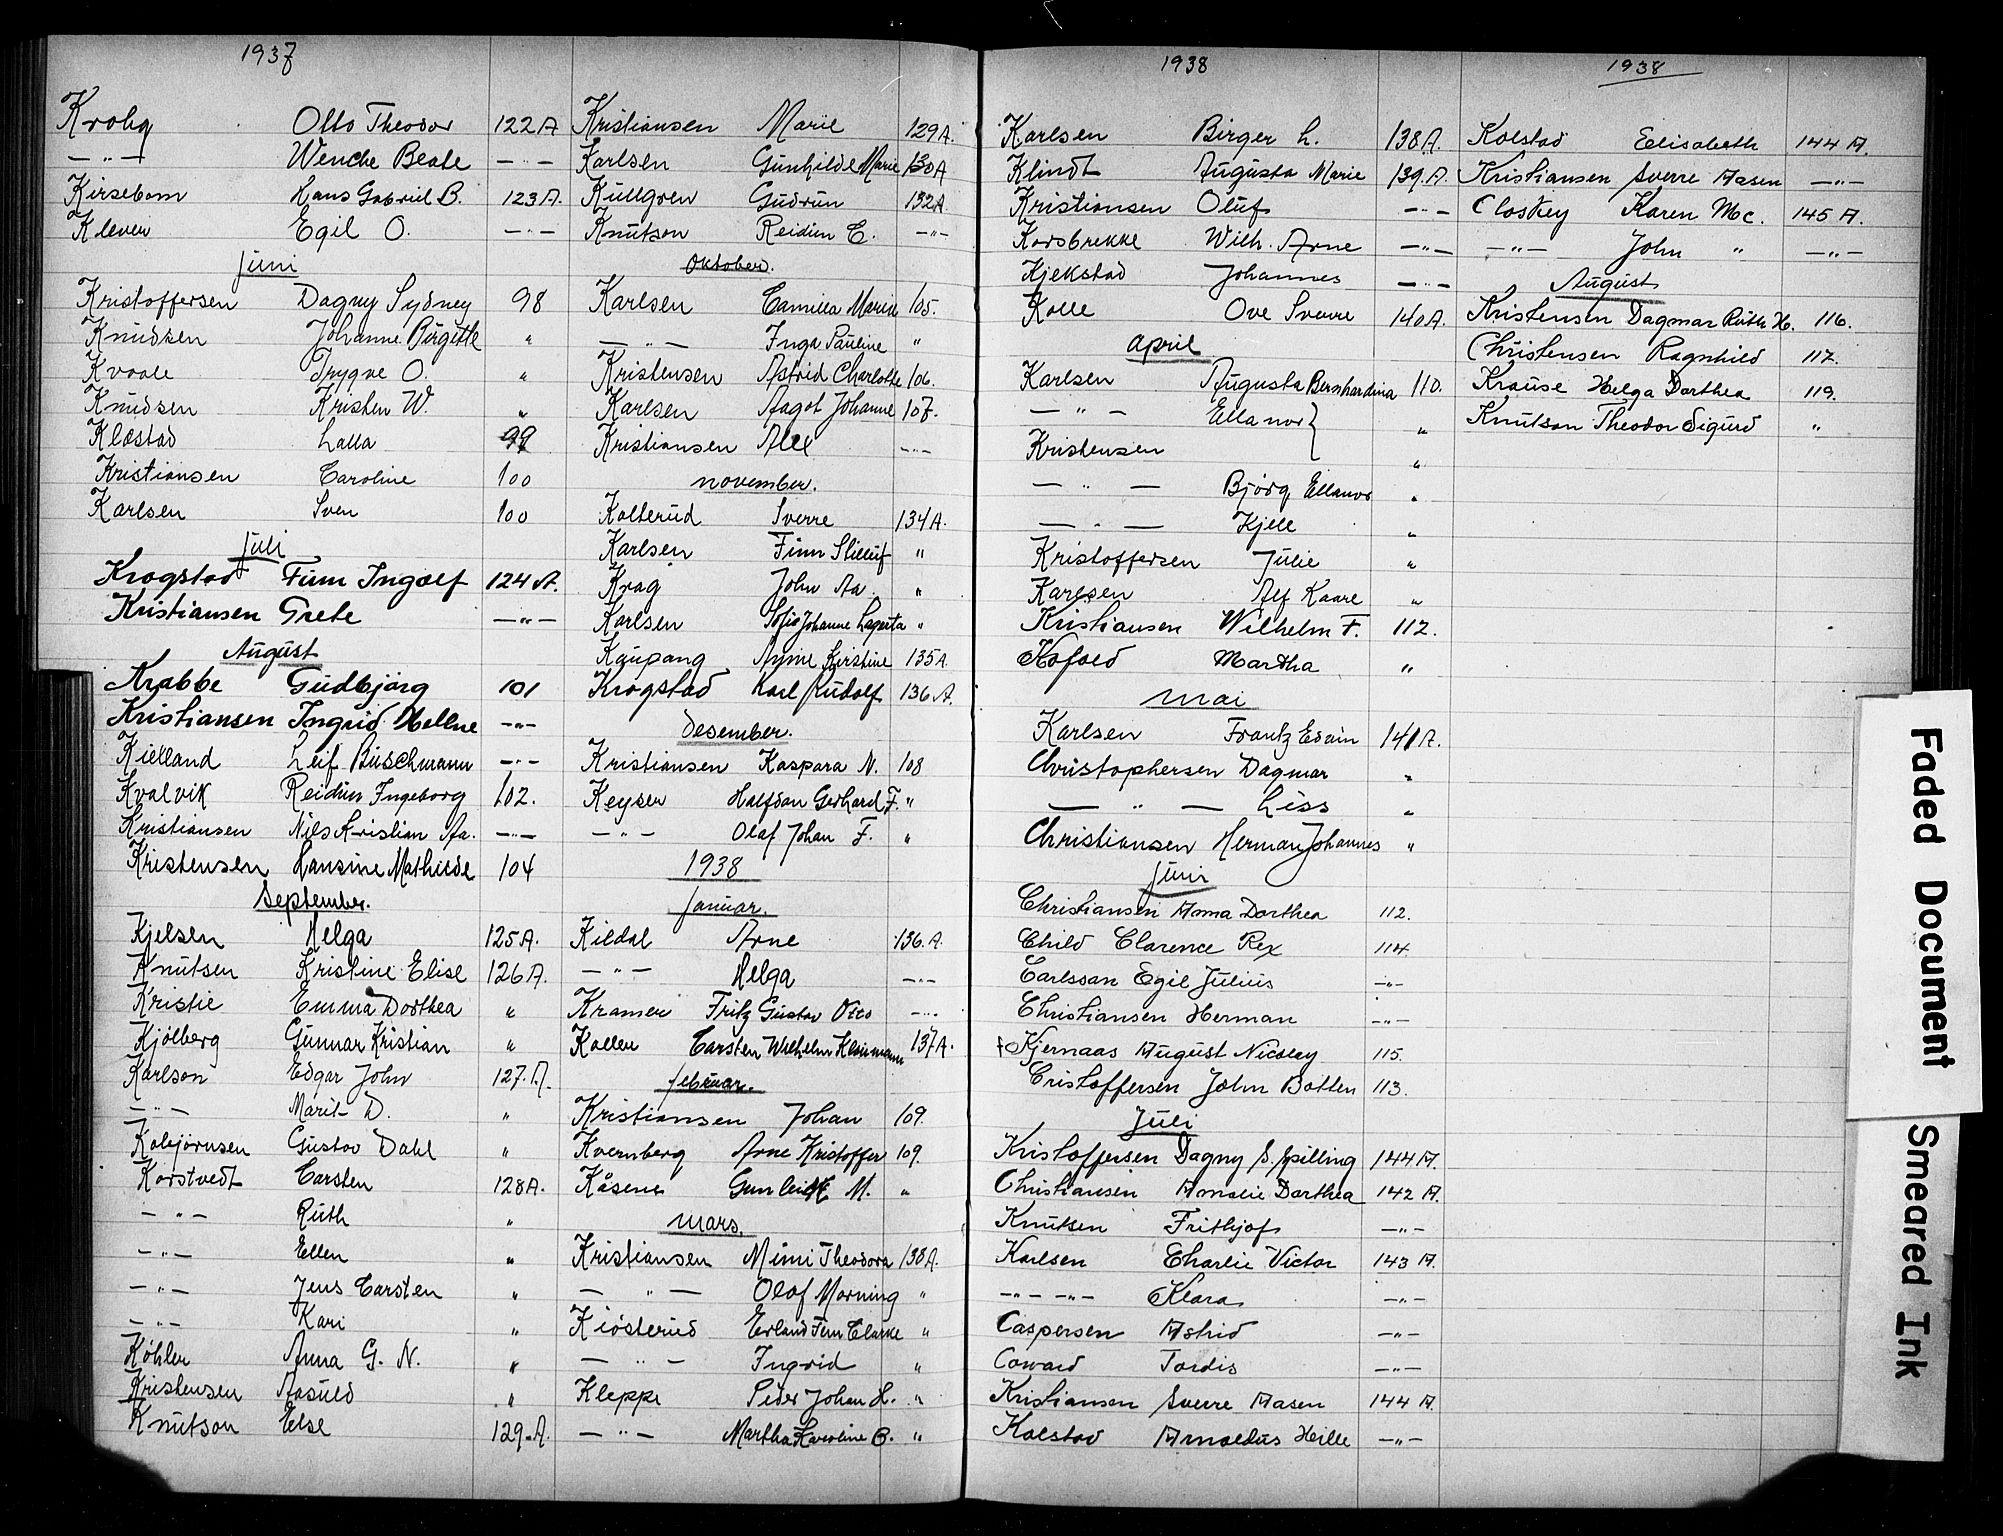 1937
Krohg Otto Theodor 122A
— " — Wenche Beate — " —
Kirsebom Hans Gabriel B. 123A.
Klever Egil O. — " —
Juni
Kristoffersen Dagny Sydney 98
Knudsen Johanne Birgitte "
Kvaale Trygve O. "
Knudsen Kristen W. "
Klæstad Lalla 99
Kristiansen Caroline 100
Karlsen Sven 100
Juli
Krogstad Finn Ingolf 124A.
Kristiansen Grete — " —
August
Krabbe Gudbjørg 101
Kristiansen Ingrid Mellne — " —
Kielland Leif Buschmann — " —
Kvalvik Reidun Ingeborg 102.
Kristiansen Nils Kristian Aa. — " —
Kristensen Hansine Mathilde 104
September.
Kjelsen Helga 125A.
Knutsen Kristine Elise 126A.
Kristie Emma Dorthea "
Kjølberg Gunnar Kristian "
Karlson Edgar John 127.A.
— " — Marit D. "
Kolbjørnsen Gustav Dahl "
Korstvedt Carsten 128A.
— " — Ruth "
— " — Ellen "
— " — Jens Carsten "
— " — Kari "
Køhler Anna G. N. "
Kristensen Aasuld "
Knutson Else 129.A.
Kristiansen Marie 129A.
Karlsen Gunhilde Marie 130A
Kullgren Gudrun 132A
Knutson Reidun E. — " —
Oktober.
Karlsen Camilla Marie 105.
— " — Inga Pauline "
Kristensen Astrid Charlotte 106.
Karlsen Aagot Johanne 107.
Kristiansen Alec — " —
november.
Kolterud Sverre 134A.
Karlsen Finn "
Krag John Aa. "
Karlsen Sofie Johanne Lagerta "
Kaupang Anine Kirstine 135A.
Krogstad Karl Rudolf 136A.
Desember.
Kristiansen Kaspara N. 108
Keyser Halfdan Gerhard F. "
— " — Olaf Johan F. "
1938
Januar.
Kildal Arne 136.A.
— " — Helga — " —
Kramer Fritz Gustav Otto — " —
Koller Carsten Wilhelm Kleinmann 137A.
februar.
Kristiansen Johan 109.
Kvernberg Arne Kristoffer 109.
Kåsene Gunleik M. "
Mars.
Kristiansen Mimi Theodora 138A.
— " — Olaf Morning "
Kiøsterud Erland Finn Clarke "
— " — Ingrid "
Kleppe Peder Johan H. "
— " — Martha Karoline B. "
1938
Karlsen Birger L. 138A.
Klindt Augusta Marie 139.A.
Kristiansen Oluf — " —
Korsbrekke Wilh. Arne — " —
Kjekstad Johannes — " —
Kolle Ove Sverre 140A.
April
Karlsen Augusta Bernhardina 110.
— " — Ellanor } "
Kristensen "
— " — Bjørg Ellanor "
— " — Kjell "
Kristoffersen Julie "
Karlsen Alf Kaare "
Kristiansen Wilhelm F. 112.
Kofoed Martha "
Mai
Karlsen Frantz Edvin 141A.
Christophersen Dagmar "
— " — Liss "
Christiansen Herman Johannes "
Juni
Christiansen Anna Dorthea 112.
Child Clarence Rex 114.
Carlsson Egil Julius — " —
Christiansen Herman — " —
+ Kjernaas August Nicolay 115.
Cristoffersen John Botten 113.
Juli
Kristoffersen Dagny S. Spilling 144A.
Christiansen Amalie Dorthea 142A.
Knutsen Frithjof — " —
Karlsen Charlie Victor 143A.
— " — — " — Klara — " —
Caspersen Astrid — " —
Coward Tordis — " —
Kristiansen Sverre Aasen 144A.
Kolstad Arnoldus Hille — " —
1938
Kolstad Elisabeth 144A.
Kristiansen Sverre Aasen — " —
Closkey Karen Mc. 145A.
— " — John " — " —
August
Kristensen Dagmar Ruth H. 116.
Christensen Ragnhild 117.
Krause Helga Dorthea 119.
Knutson Theodor Sigurd "
Faded Document
Smeared Ink